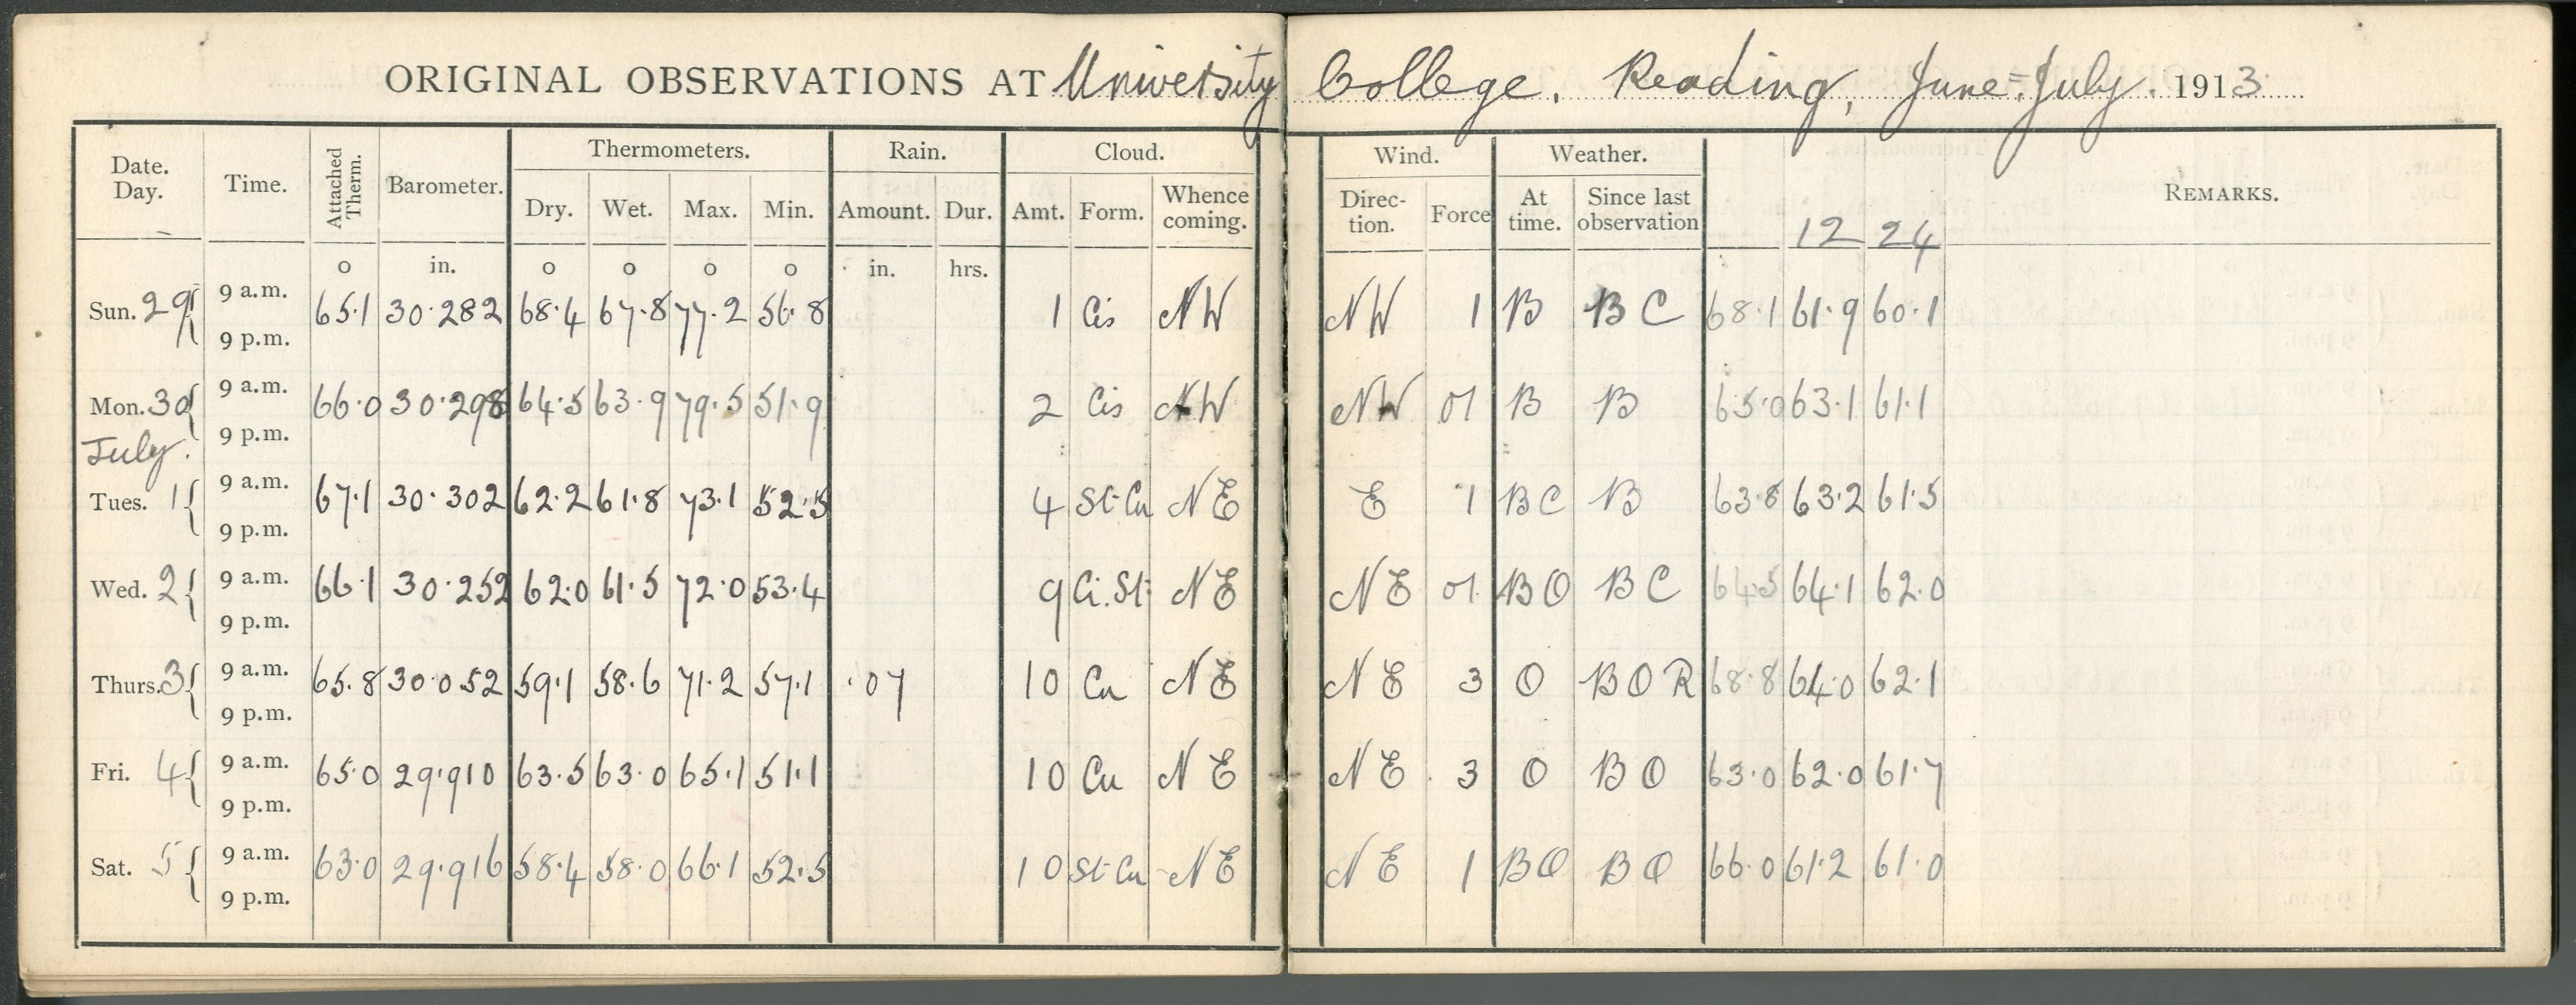 ORIGINAL OBSERVATIONS AT University College, Reading, June=July. 1913
Date. Day. Time. Attached Therm. Barometer. Thermometers. Rain. Cloud. Wind. Weather. REMARKS.
Dry. Wet. Max. Min. Amount. Dur. Amt. Form. Whence coming. Direc- tion. Force At time. Since last observation 12 24
o in. o o o o in. hrs.
Sun. 29 9 a.m. 65.1 30.282 68.4 67.8 77.2 56.8 1 Cis NW NW 1 B BC 68.1 61.9 60.1
9 p.m.
Mon. 30 9 a.m. 66.0 30.298 64.5 63.9 79.5 51.9 2 Cis NW NW 01 B B 65.0 63.1 61.1
9 p.m.
July.
Tues. 1 9 a.m. 67.1 30.302 62.2 61.8 73.1 52.5 4 St-Cu NE E 1 BC B 63.8 63.2 61.5
9 p.m.
Wed. 2 9 a.m. 66.1 30.252 62.0 61.5 72.0 53.4 9 Ci.St. NE NE 01 BO BC 64.5 64.1 62.0
9 p.m.
Thurs. 3 9 a.m. 65.8 30.052 59.1 58.6 71.2 57.1 .07 10 Cu NE NE 3 O BOR 68.8 64.0 62.1
9 p.m.
Fri. 4 9 a.m. 65.0 29.910 63.5 63.0 65.1 51.1 10 Cu NE NE 3 O BO 63.0 62.0 61.7
9 p.m.
Sat. 5 9 a.m. 63.0 29.916 58.4 58.0 66.1 52.5 10 St-Cu NE NE 1 BO BO 66.0 61.2 61.0
9 p.m.